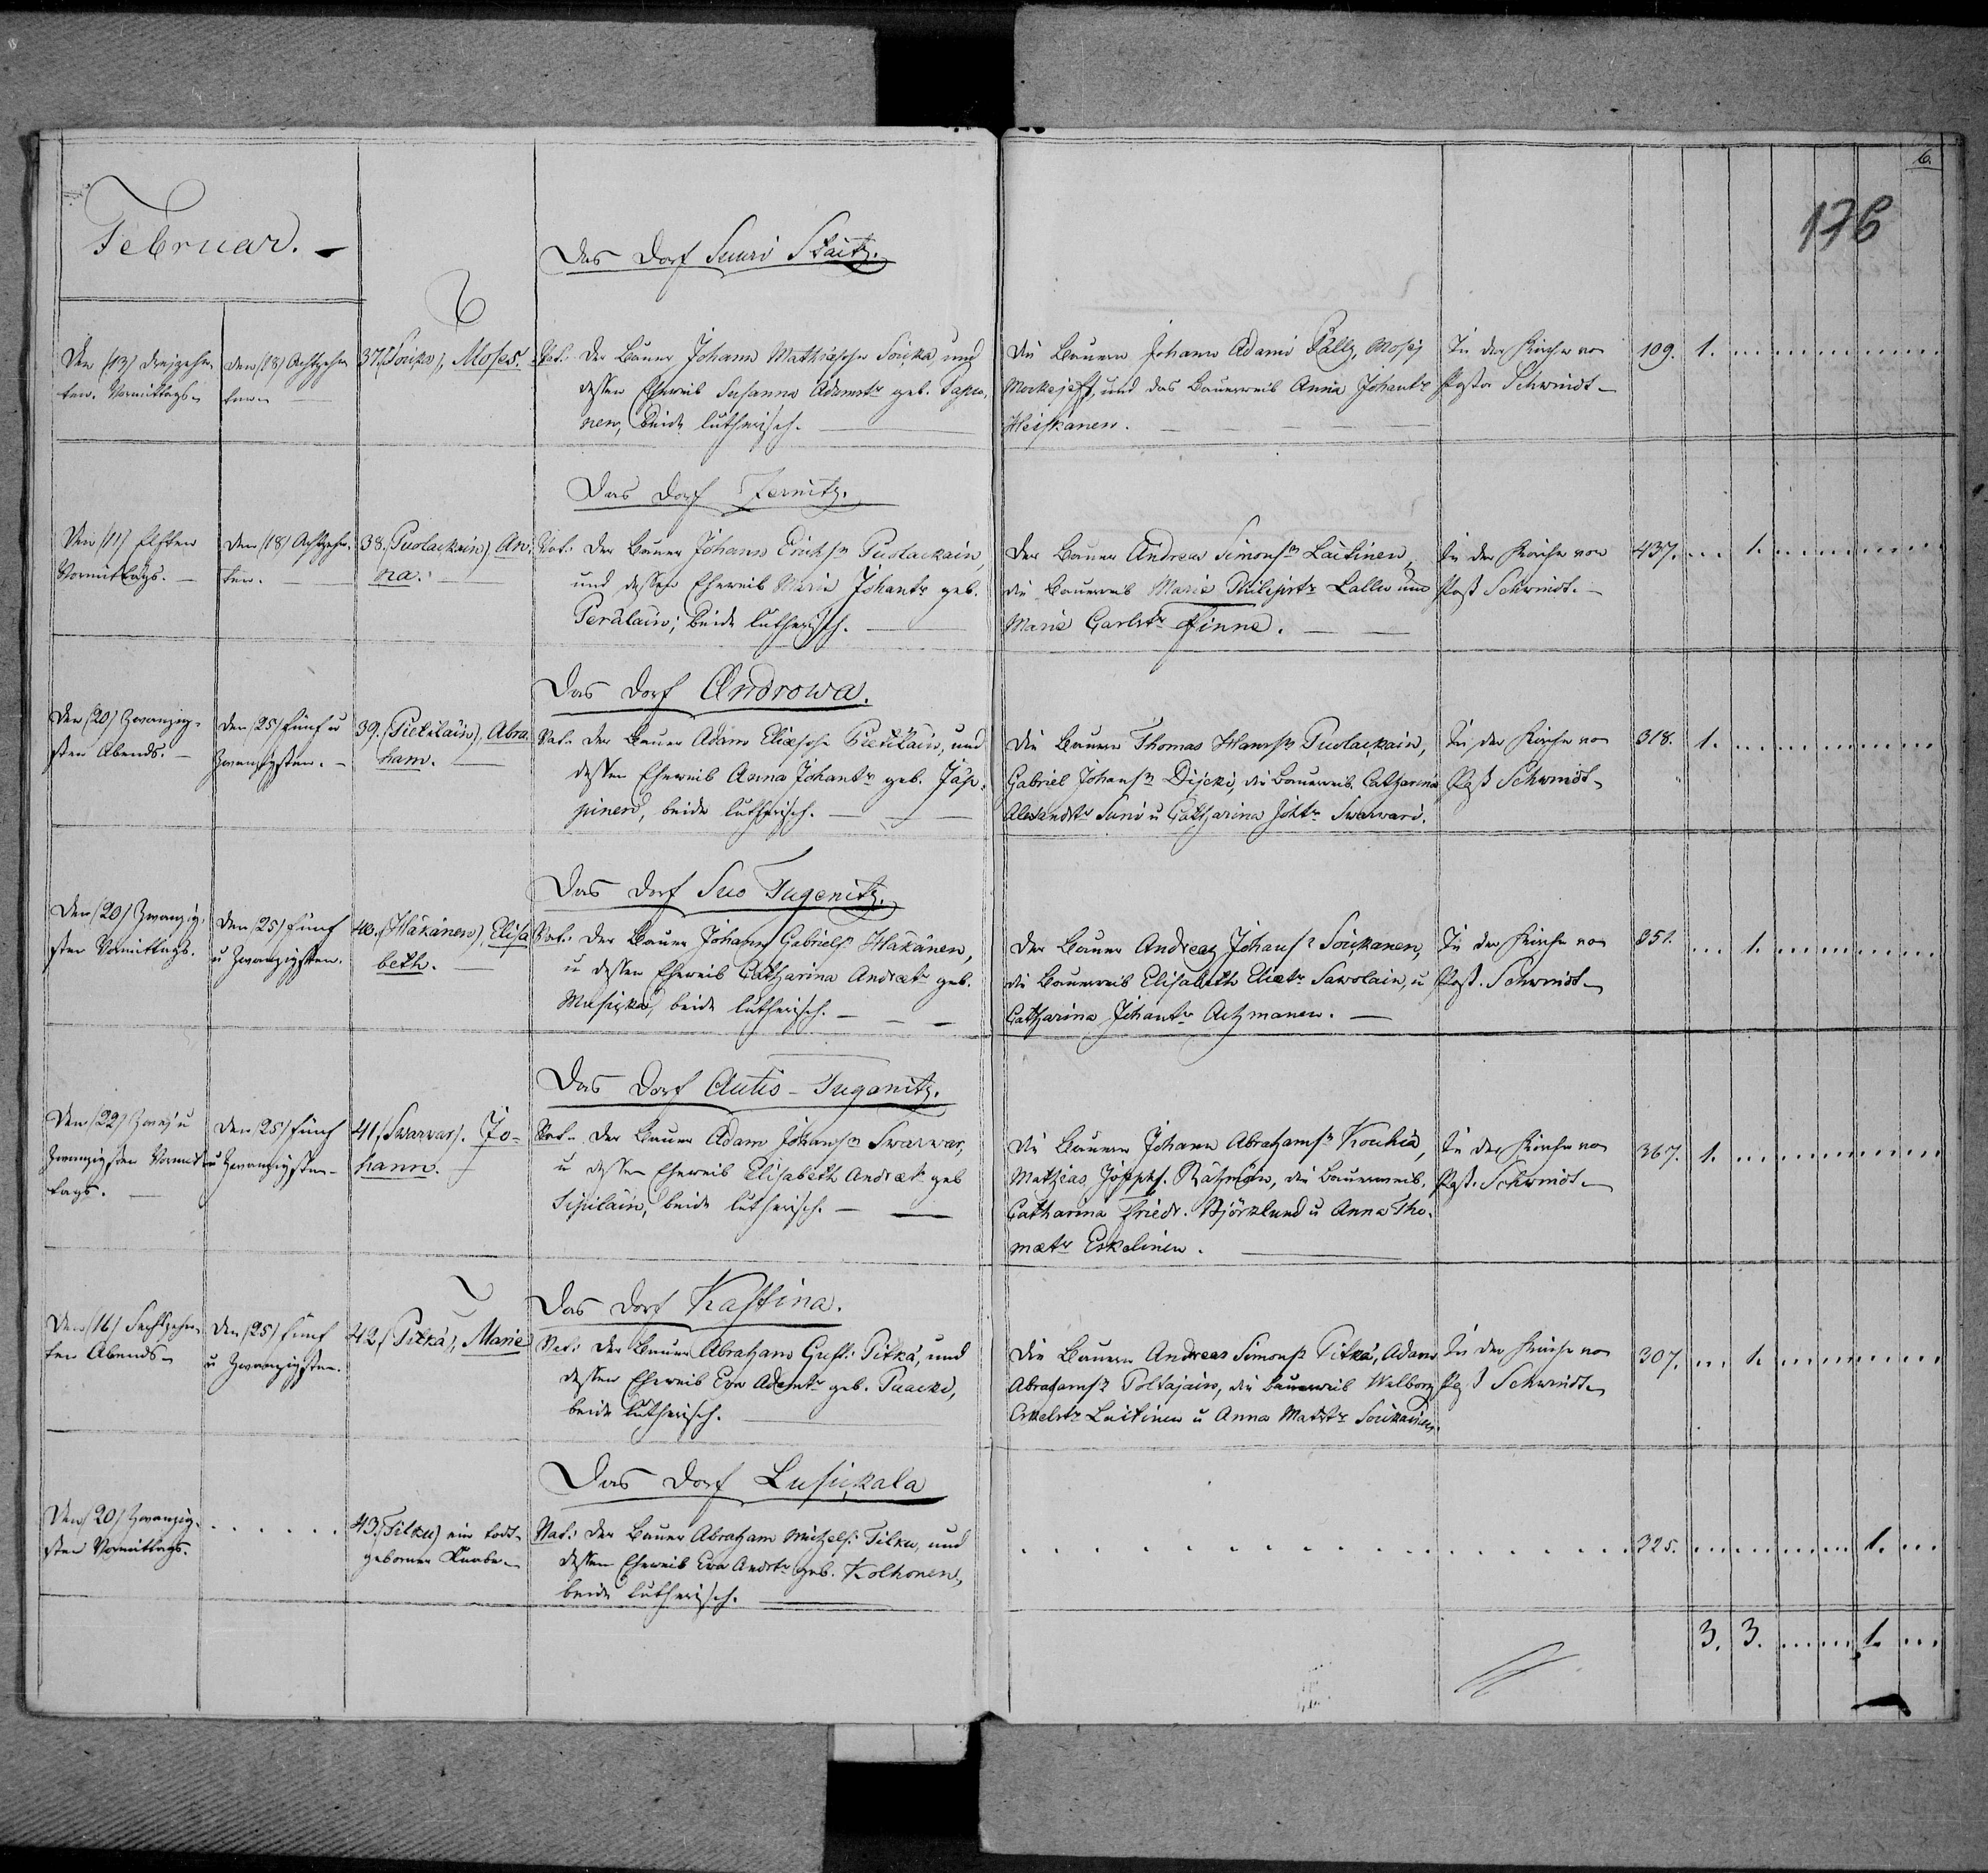 6.
176
Februar. –
Das Dorf Suuri Skaitz.
Den (13) dreizehn
ten. Vormittags.
den (18) Achtzehn
ten.
37. (Souka), Moses.
Vat. Der Bauer Johann Mathiæsohn Souka, und
dessen Eheweib Susanna Adamstr. geb. Papu,
nen, beide lutherisch.
Die Bauern Johann Adami Pälly, Mosej
Mockejeff, und das Bauerweib Anna Johantr
Heiskanen.
In der Kirche von
Pastor Schwindt
109. 1.
Das Dorf Zernitz.
Den (11) Elften
Vormittags. –
den (18) Achtzehn-
ten.
38. (Puolackain) An-
na.
Vat. Der Bauer Johann Erichsn Puolackain,
und dessen Eheweib Maria Johantr geb.
Peräläin; beide lutherisch.
Der Bauer Andreas Simonsn Laitinen,
die Bauerweib Maria Philipstr Lallu und
Maria Carlstr Finne.
In der Kirche von
Past Schwindt. –
437. 1.
Das Dorf Androwa.
Den (20) Zwanzig-
sten Abends. –
den (25) fünf u
Zwanzigsten. –
39. (Pietiläin), Abra-
ham.
Vat. Der Bauer Adam Eliæsohn Pietiläin, und
dessen Eheweib Anna Johantr geb. Jäp-
pinen, beide lutherisch.
Die Bauern Thomas Hanssn Puolackain,
Gabriel Johansn Dijcki, die Bauerweib. Catharina
Alexandtr Suni u Catharina Johtr Swarwari.
In der Kirche von
Past Schwindt
318. 1.
Das Dorf Suo Tugenitz.
Den (20) Zwanzig-
sten Vormittags.
den (25) fünf
u Zwanzigsten.
40. (Häkänen), Elisa
beth.
Vat. Der Bauer Johann Gabriels. Häkänen,
u dessen Eheweib Catharina Andreætr geb.
Musicka, beide lutherisch.
Der Bauer Andreas Johansn Soukanen,
die Bauerweib Elisabeth Eliætr Sawolain, u
Catharina Johantr Aetzmanen.
In der Kirche von
Past. Schwindt
351. 1.
Das Dorf Autio-Tuganitz.
Den (22) Zwei u
Zwanzigsten Vormit-
tags.
den (25) fünf
u Zwanzigsten
41. (Swarwar). Jo-
hann.
Vat. Der Bauer Adam Johansn Swarwar,
u dessen Eheweib Elisabeth Andreætr geb
Sipiläin, beide lutherisch.
Die Bauern Johann Abrahamsn Kouhia,
Mathias Josephs. Rätzmäin, die Bauerweib.
Catharina Friedr. Björklund u Anna Tho-
mætr Eskelinen.
In der Kirche von
Past. Schwindt
367. 1.
Das Dorf Kassina.
Den (16) Sechszehn-
ten Abends
den (25) fünf
u Zwanzigsten.
42. (Pitkä), Marie
Vat. Der Bauer Abraham Gust. Pitkä, und
dessen Eheweib Eva Adamtr geb. Puacki,
beide lutherisch.
Die Bauern Andreas Simonsn Pitkä, Adam
Abrahamsn Poltajain, die Bauerweib Walborg
Laitinen u Anna Mattr Soukainen.
In der Kirche von
Past Schwindt
307. 1.
Das Dorf Lusickala
Den (20) Zwanzig-
sten Vormittags.
43. (Tilku) ein todt-
geborner Knabe
Vat. Der Bauer Abraham Michels. Tilku, und
dessen Eheweib Eva Andrtr geb. Kolhonen,
beide lutherisch.
325. 1.
3. 3. 1.